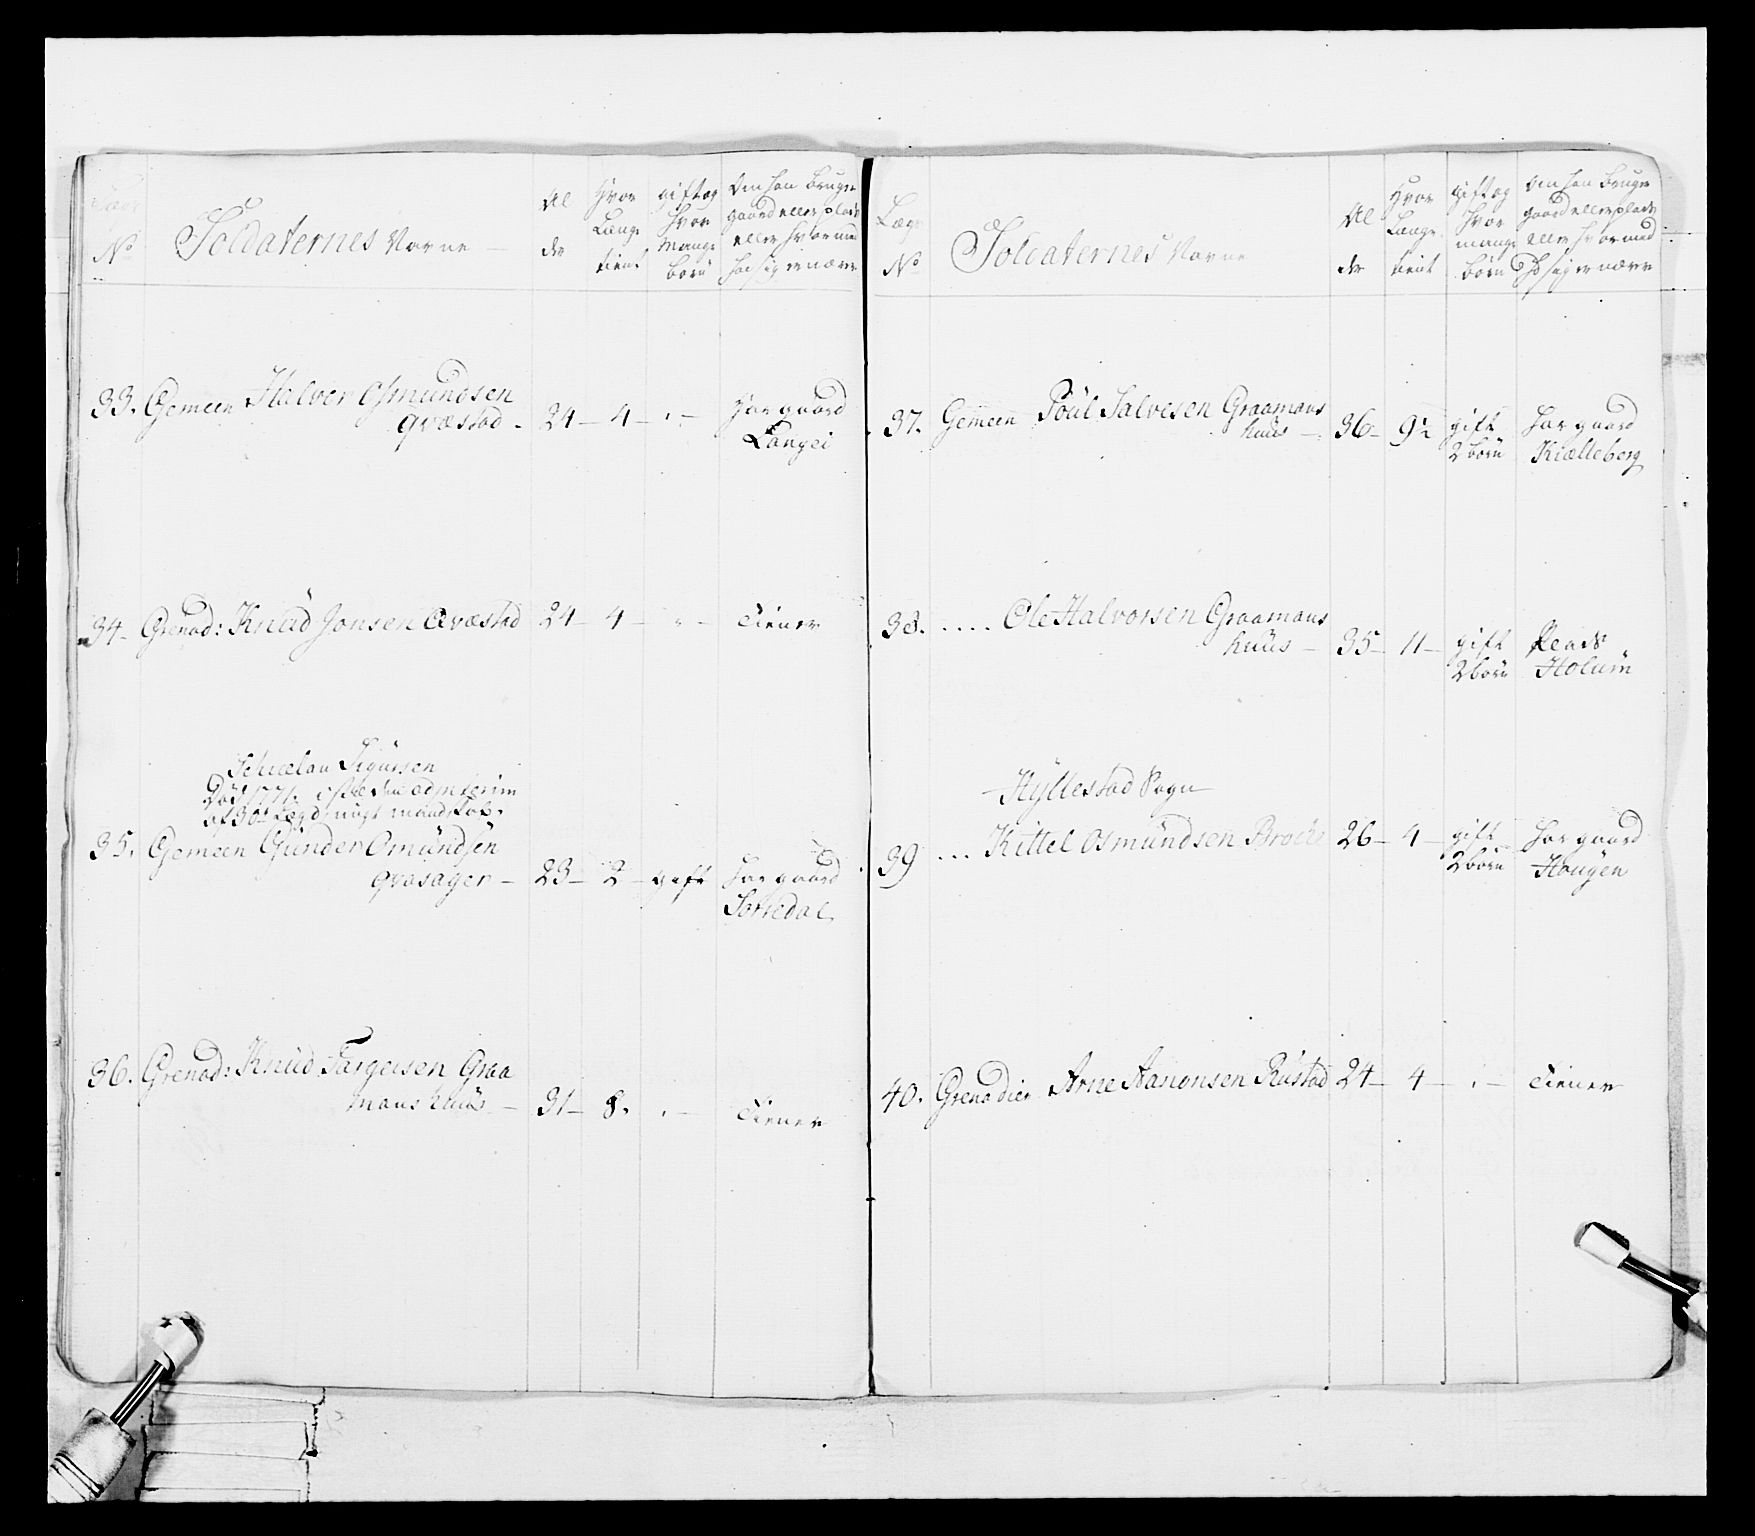 Læg
No
Soldaternes Navne
Al
der
Hvor
Længe
tient
gift og
hvor
Mange
børn
Om han bruger
gaard eller plads
eller hvormed
han sig ernærer
33. Gemeen Halvor Osmundsen
Qvæstad - 24 - 4 -
Har gaard
Langei
34 - Grenad: Knud Jonsen Qvæstad 24 - 4 -
Tiener
Sigursen
Død 1771.
35. Gemeen Gunder Omundsen
Qvasager - 23 - 2 - gift
har gaard
36. Grenad: Knud Targeisen Graa
mans huus - 31 - 8.
Tiener
Læg
No
Soldaternes Navne
Al
der
Hvor
Længe
tient
gift og
hvor
mange
børn
Om han bruger
gaard eller plads
eller hvormed
sig ernærer
37. Gemeen Poul Salvesen Graamans
huus - 36 - 9½
gift
2 børn
har gaard
Kiælleberg
38. .... Ole Halvorsen Graamans
huus - 35 - 11 -
gift
2 børn
Plads
Holum
Hyllestad Sogn
39 ... Kittel Osmundsen Broche 26 - 4 -
gift
2 børn
har gaard
Hougen
40. Grenadier Arne Aanonsen Rustad 24 - 4 -
Tiener